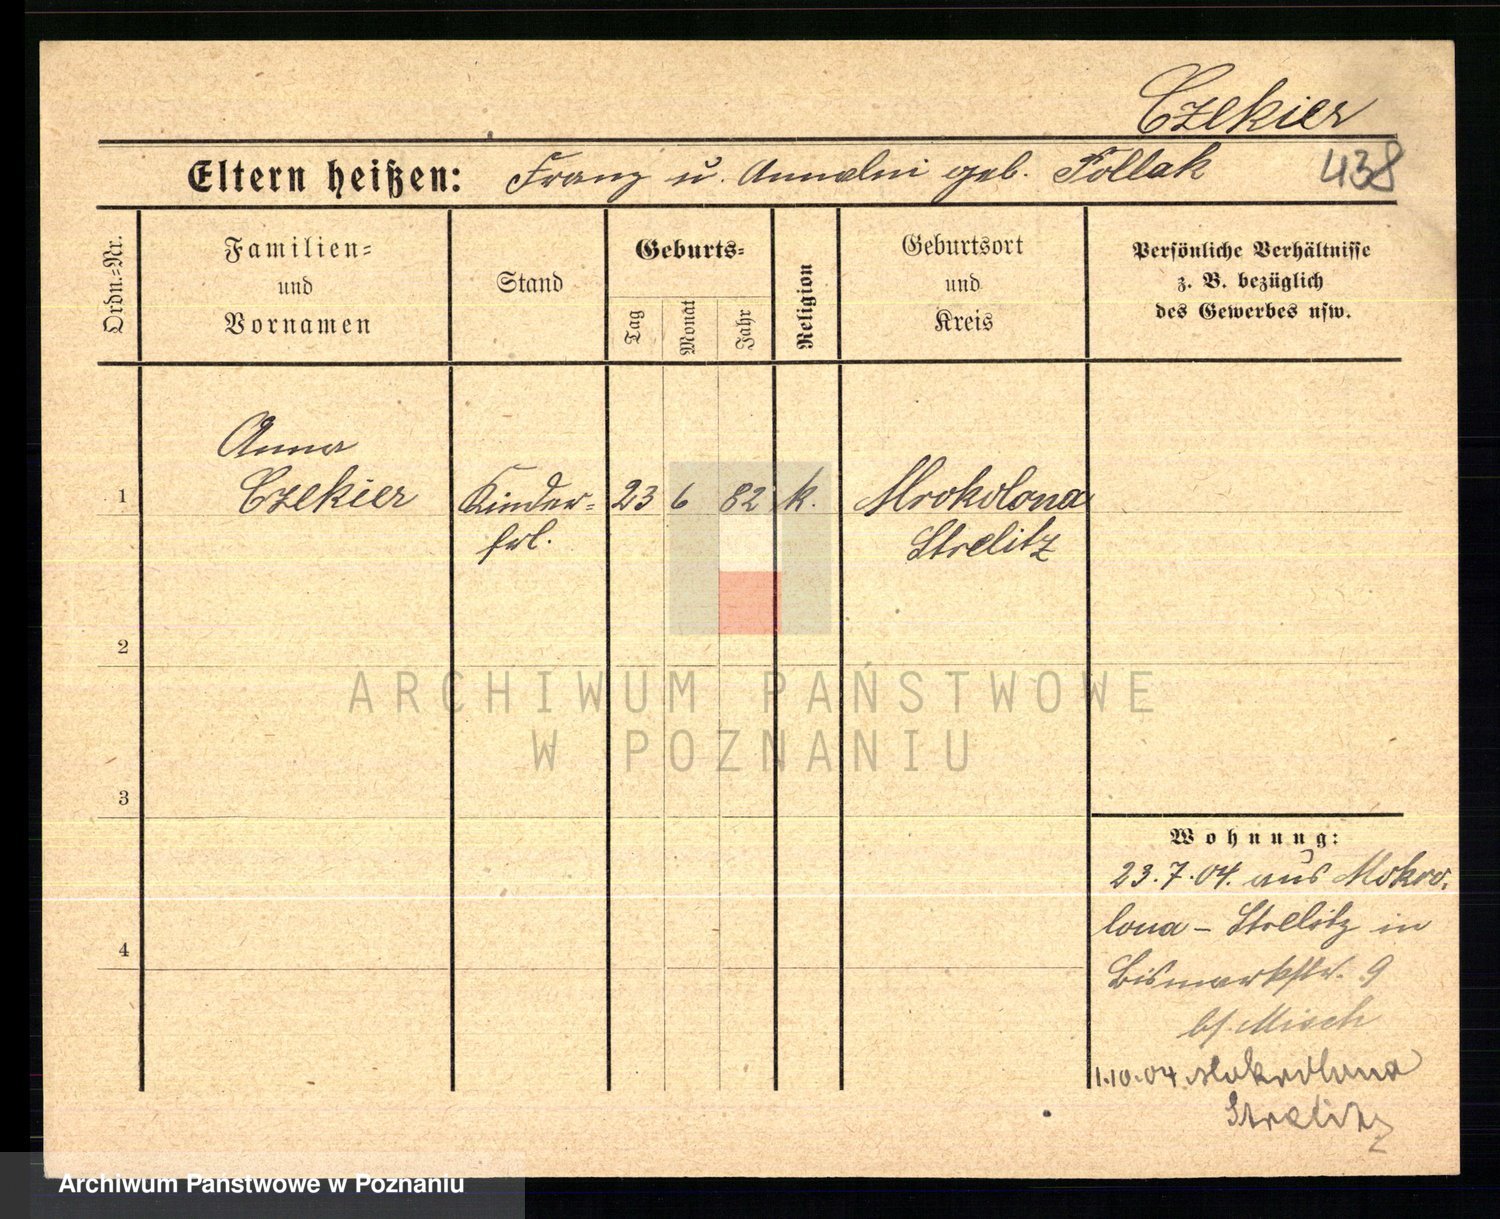 Czekier
Eltern heißen: Franz u. geb. Pollak 438
Ordn.=Nr.
Familien=
und
Vornamen
Stand
Geburts=
Tag
Monat
Jahr
Religion
Geburtsort
und
Kreis
Persönliche Verhältnisse
z. B. bezüglich
des Gewerbes usw.
Anna
1 Czekier Kinder= 23 6 82 k. Mokrolona
frl. Strelitz
2
ARCHIWUM PAŃSTWOWE
W POZNANIU
3
Wohnung:
23.7.04. aus Mokro-
4 lona – Strelitz in
Bismarkstr. 9
b/. Misch
1.10.04 Mokrolona
Strelitz
Archiwum Państwowe w Poznaniu